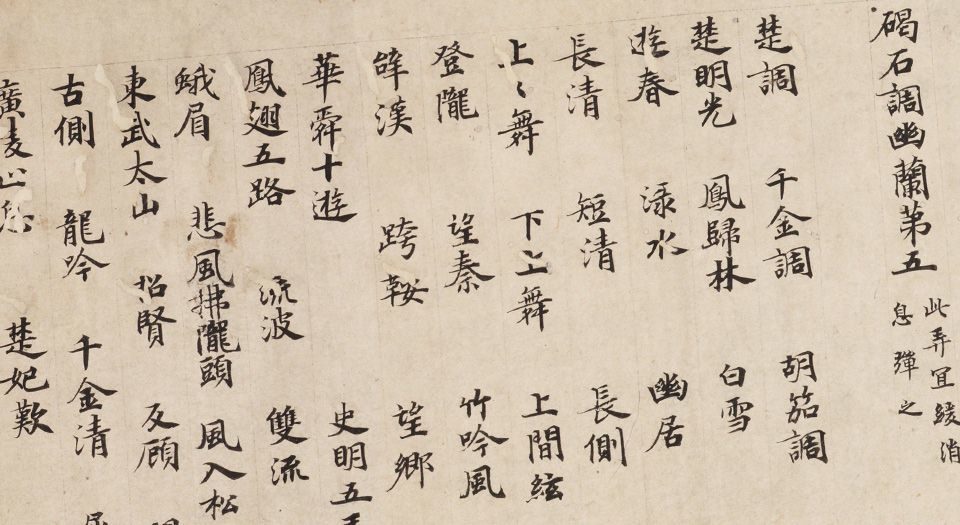 碣石調幽蘭第五 此弄宜緩消息彈之
楚調 千金調 胡笳調
楚明光 鳳歸林 白雪
遊春 渌水 幽居
長清 短清 長側
上上舞 下上舞 上間絃
登隴 望秦 竹吟風
跨鞍 望鄉
華舜十遊 史明五
鳳翅五路 流波 雙流
蛾眉 悲風拂隴頭 風入松
東武太山 招賢 反顧
古側 龍吟 千金清
廣陵止息 楚妃歎